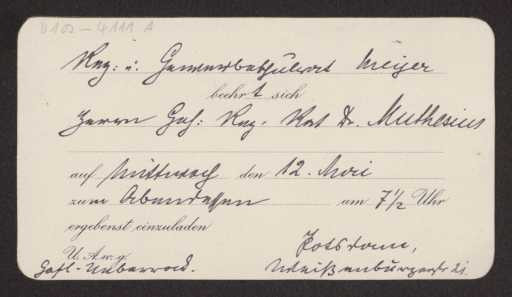 D102-4111 A
Reg: u. Gewerbeschulrat Meyer
beehrt sich
Herrn Geh: Reg. Rat Dr. Muthesius
auf Mittwoch den 12. Mai
zum Abendessen um 7 1/2 Uhr
ergebenst einzuladen
U. A. w. g.
Potsdam,
Gesl.-Ueberrock.
Weißenburgerstr 21.